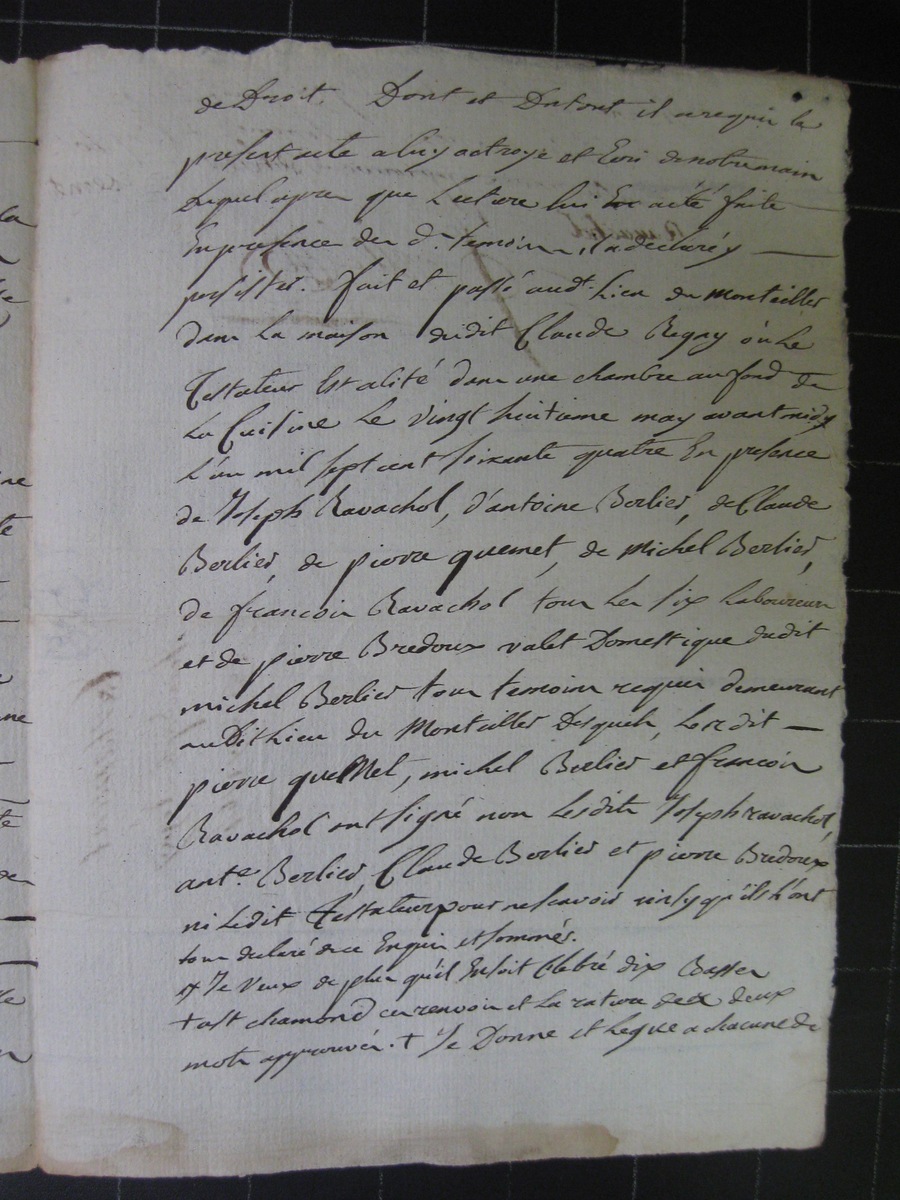 de Droit. Dont et Dutout il a requis le
present acte a luy octroyé et Ecri de notre main
Duquel apres que Lecture lui En a été faite
En presence des d.s temoins, il a declaré y
persister. fait et passé aud.t Lieu du Monteiller
dans la maison dudit Claude Regny ou Le
Testateur Est alité dans une chambre au fond de
La Cuisine Le vingt huitieme may avant midy
L'an mil sept cent soixante quatre En presence
de Joseph Ravachol, d'antoine Berlier, de Claude
Berlier, de pierre quemet, de Michel Berlier,
de francois Ravachol tous Les six Laboureurs
et de pierre Bredoux valet Domestique dudit
michel Berlier tous temoins requis demeurant
audit Lieu du Monteiller Desquels, Lesdit
pierre queMet, michel Berlier et francois
Ravachol ont signé non Lesdits Joseph ravachol,
ant.e Berlier, Claude Berlier et pierre Bredoux
ni Ledit Testateur pour ne scavoir ainsy qu'ils L'ont
tous declaré de ce Enquis et sommés.
Je veux de plus qu'il En soit Celebré dix Basses
a st chamond ces renvois et La rature des deux
mots approuvés. + Je Donne et Legue a chacune de